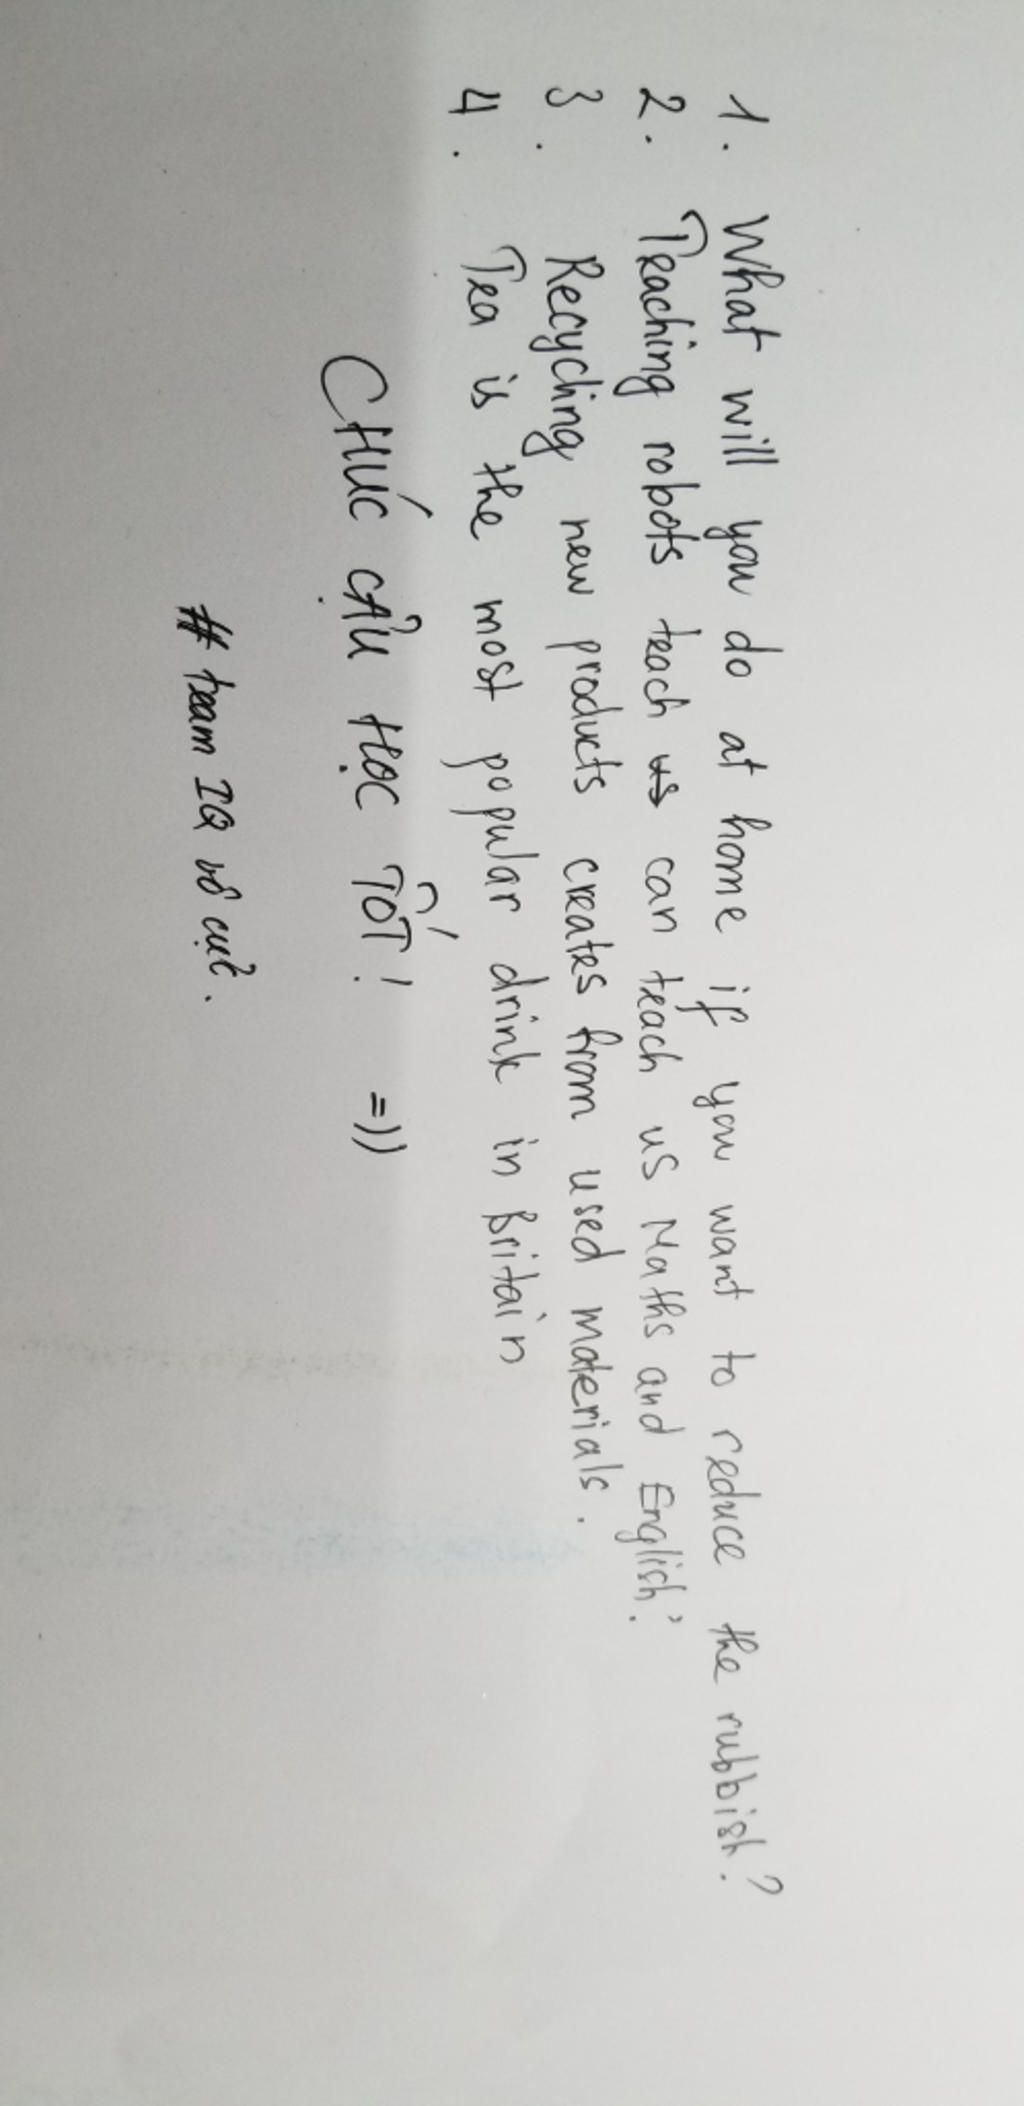 1. What will you do at home if you want to reduce the rubbish?
2. Teaching robots teach us can teach us Maths and English.
3. Recycling new products creates from used materials.
4. Tea is the most popular drink in Britain
CHÚC CẬU HỌC TỐT! =))
# team IQ vô cực.